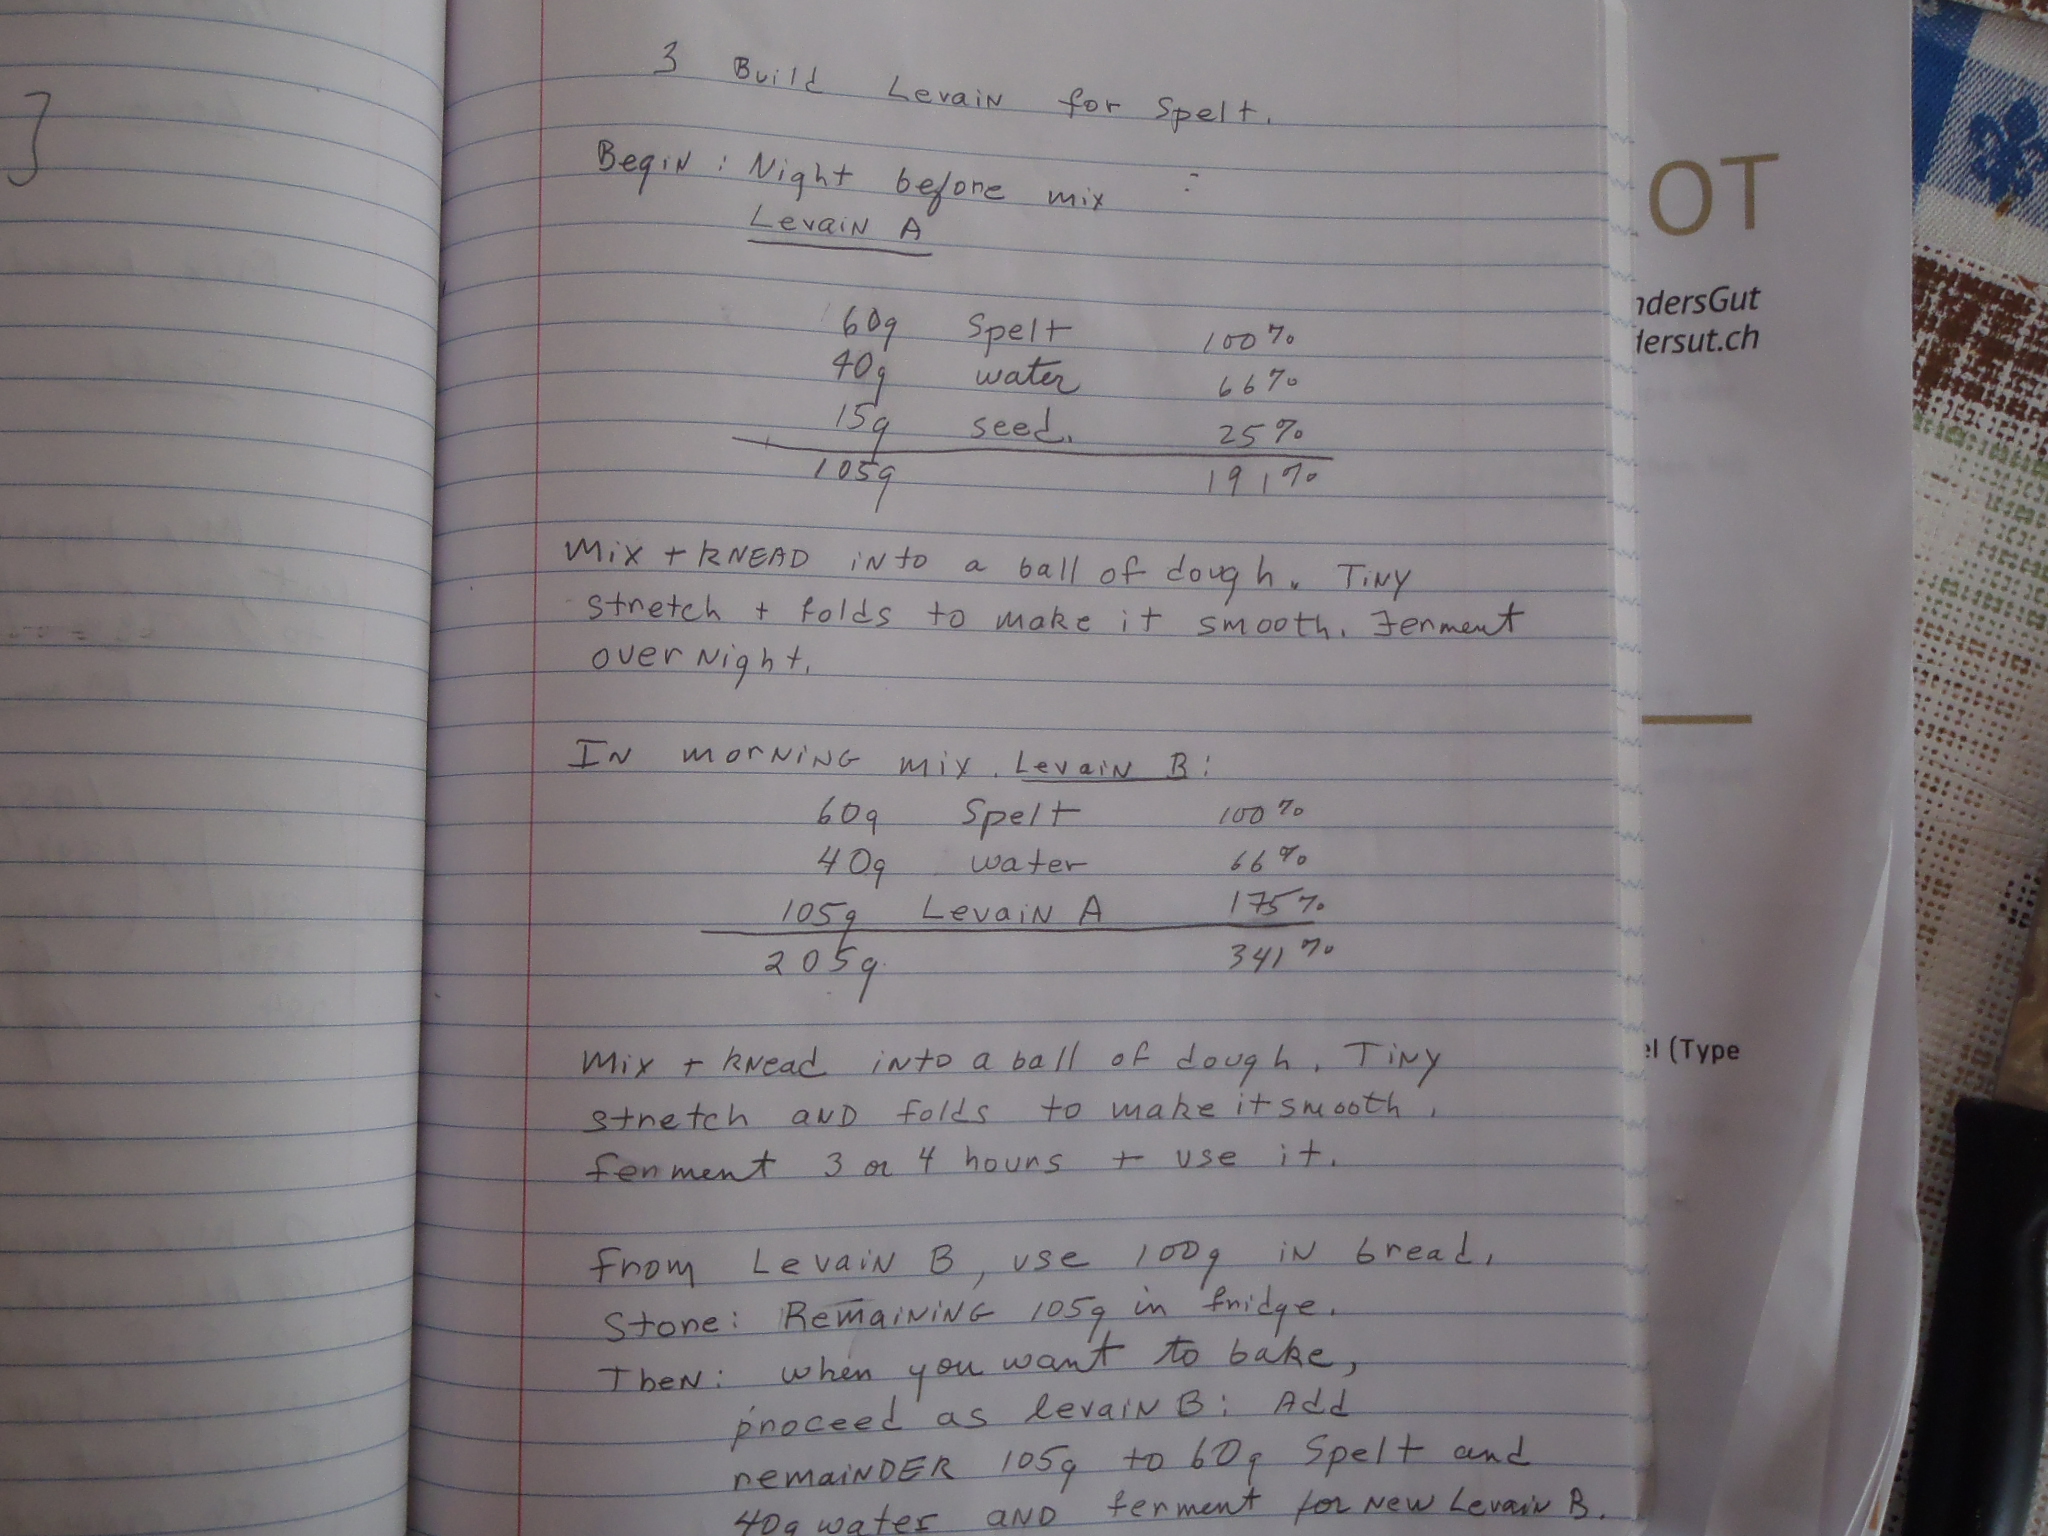 3 Build Levain for Spelt.
Begin : Night before mix :
Levain A
60g Spelt 100%
40g water 66%
15g seed. 25%
105g 191%
Mix + KNEAD into a ball of dough. Tiny
stretch + folds to make it smooth. Ferment
over Night.
In morning mix. Levain B:
60g Spelt 100%
40g water 66%
105g Levain A 175%
205g. 341%
Mix + knead into a ball of dough. Tiny
stretch AND folds to make it smooth.
ferment 3 or 4 hours + use it.
from Levain B, use 100g in bread.
Store: Remaining 105g in fridge.
Then: when you want to bake,
proceed as levain B: Add
remainDER 105g to 60g Spelt and
40g water AND ferment for New Levain B.
]
OT
ndersGut
dersut.ch
el (Type